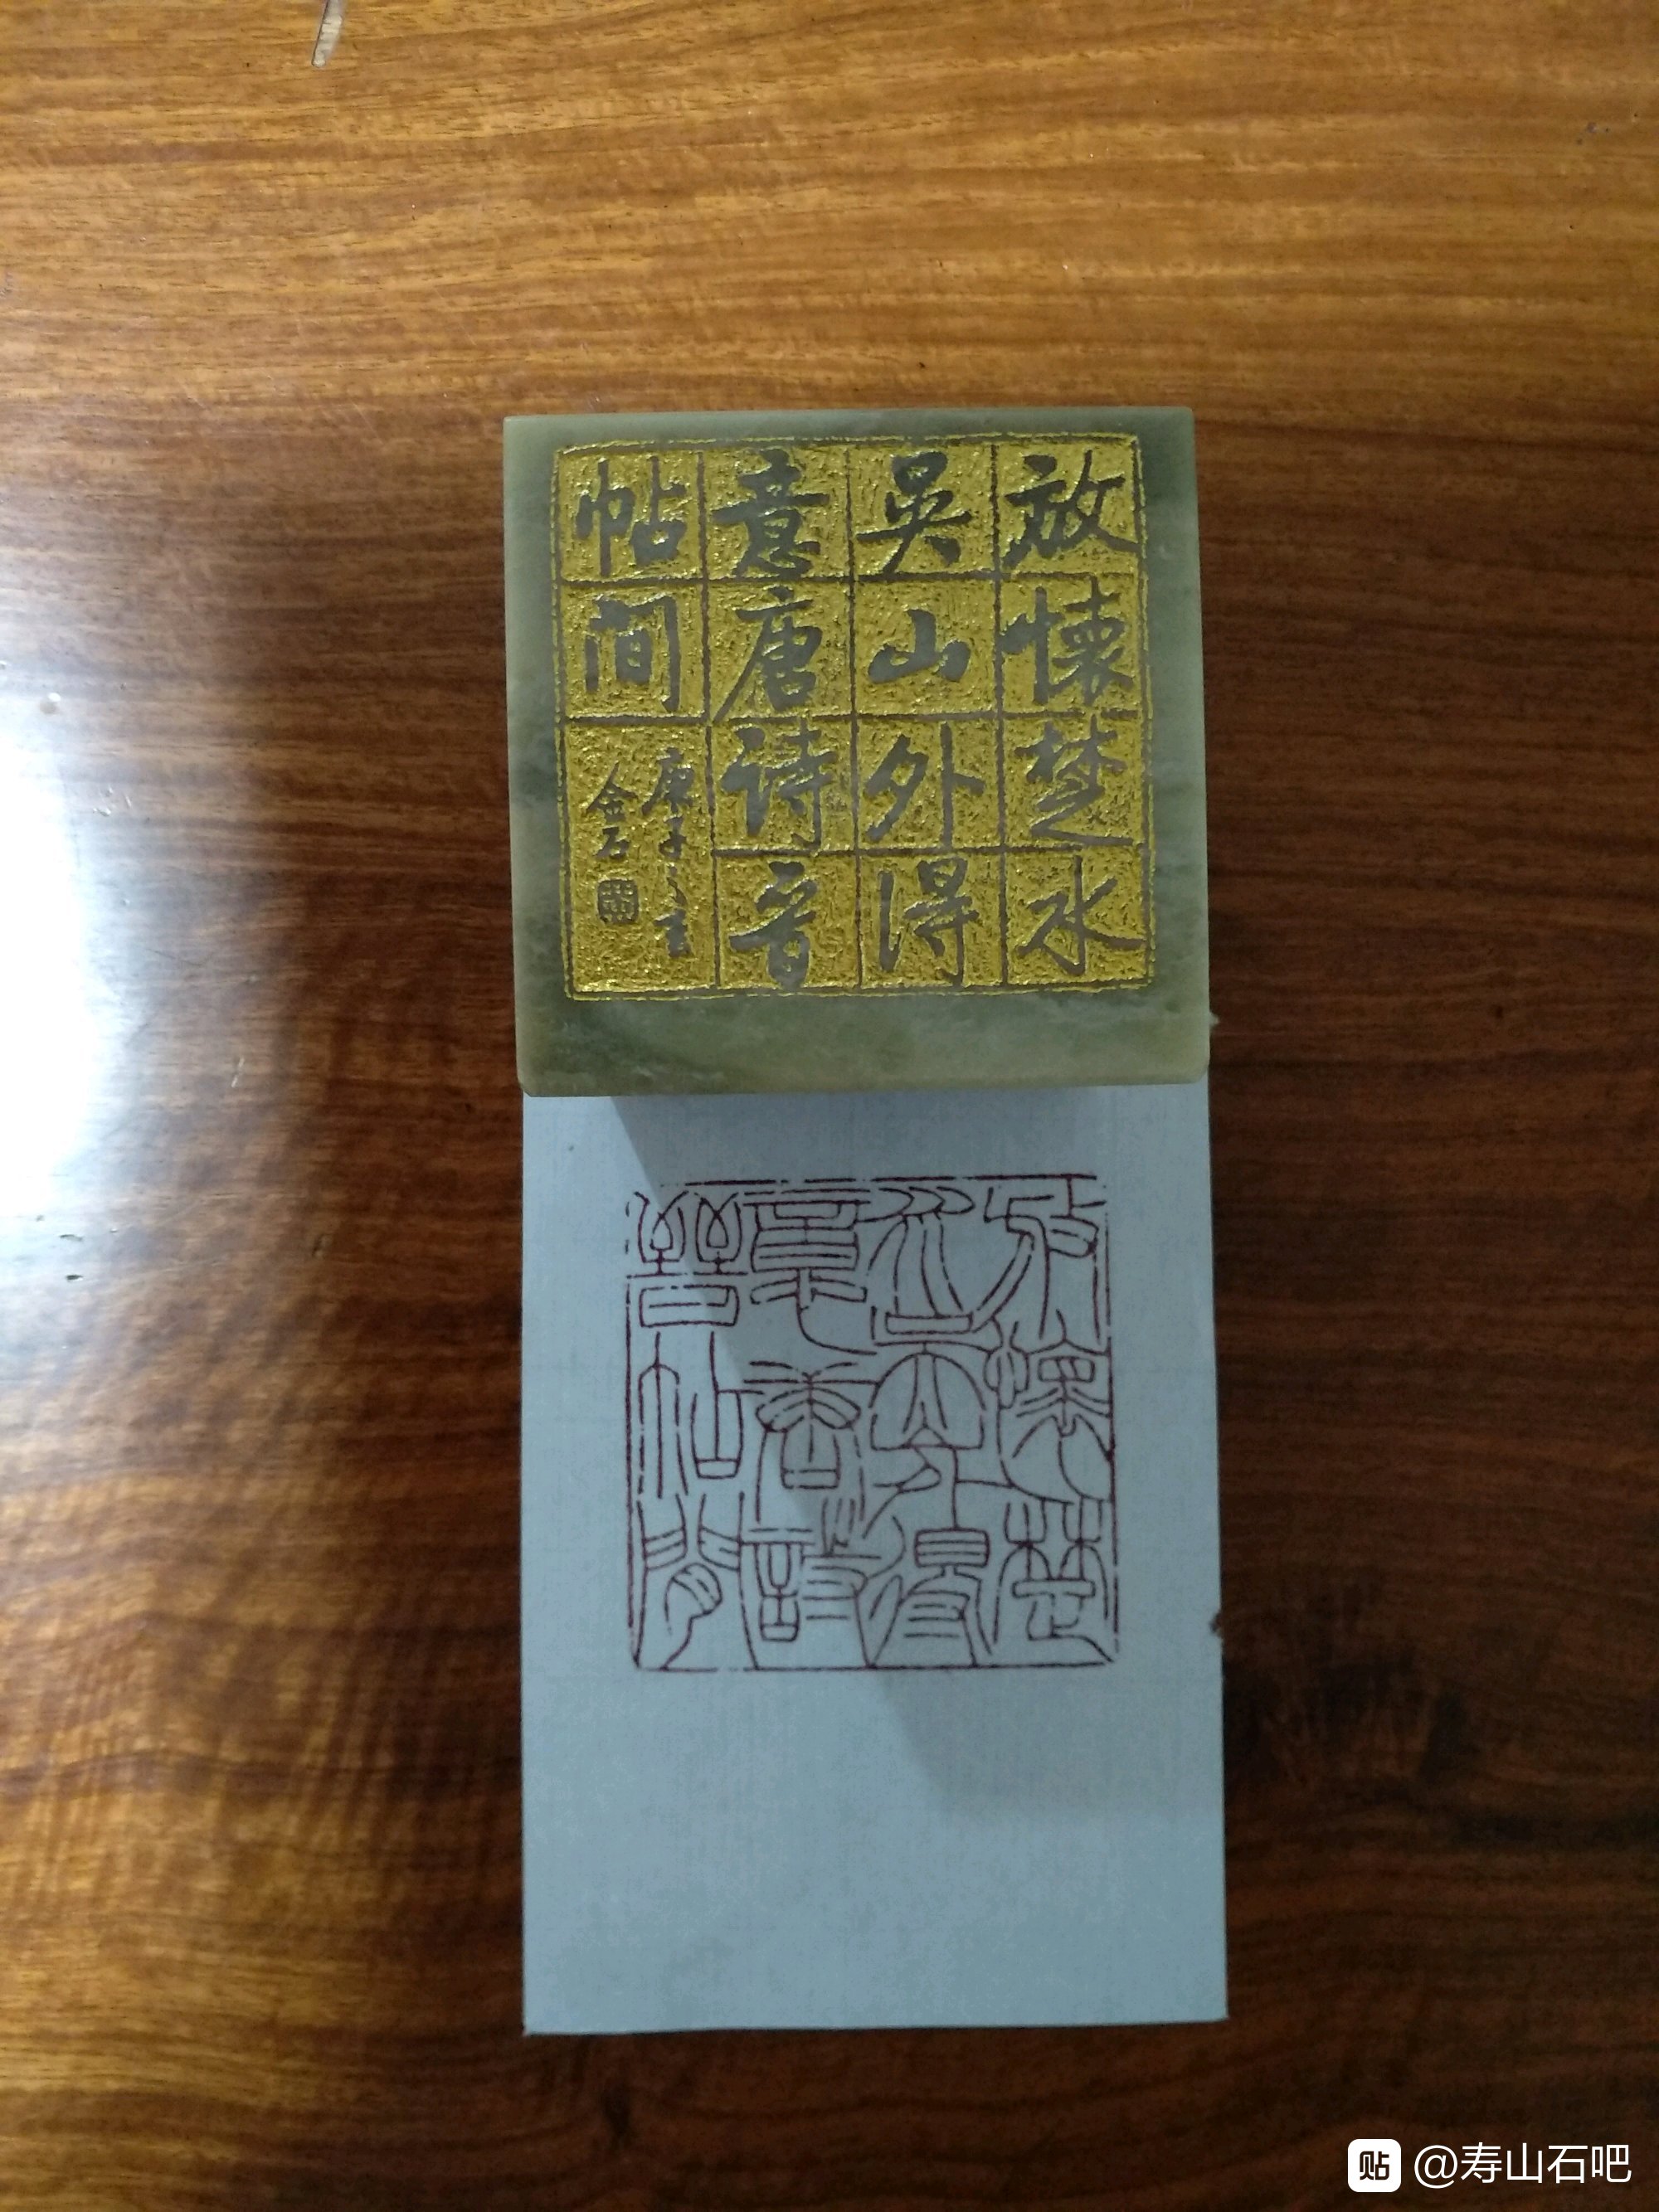 放懷楚水
吳山外得
意唐诗晋
帖间
庚子之
金石
放懷楚
外得
意唐詩
晉帖間
贴 @寿山石吧